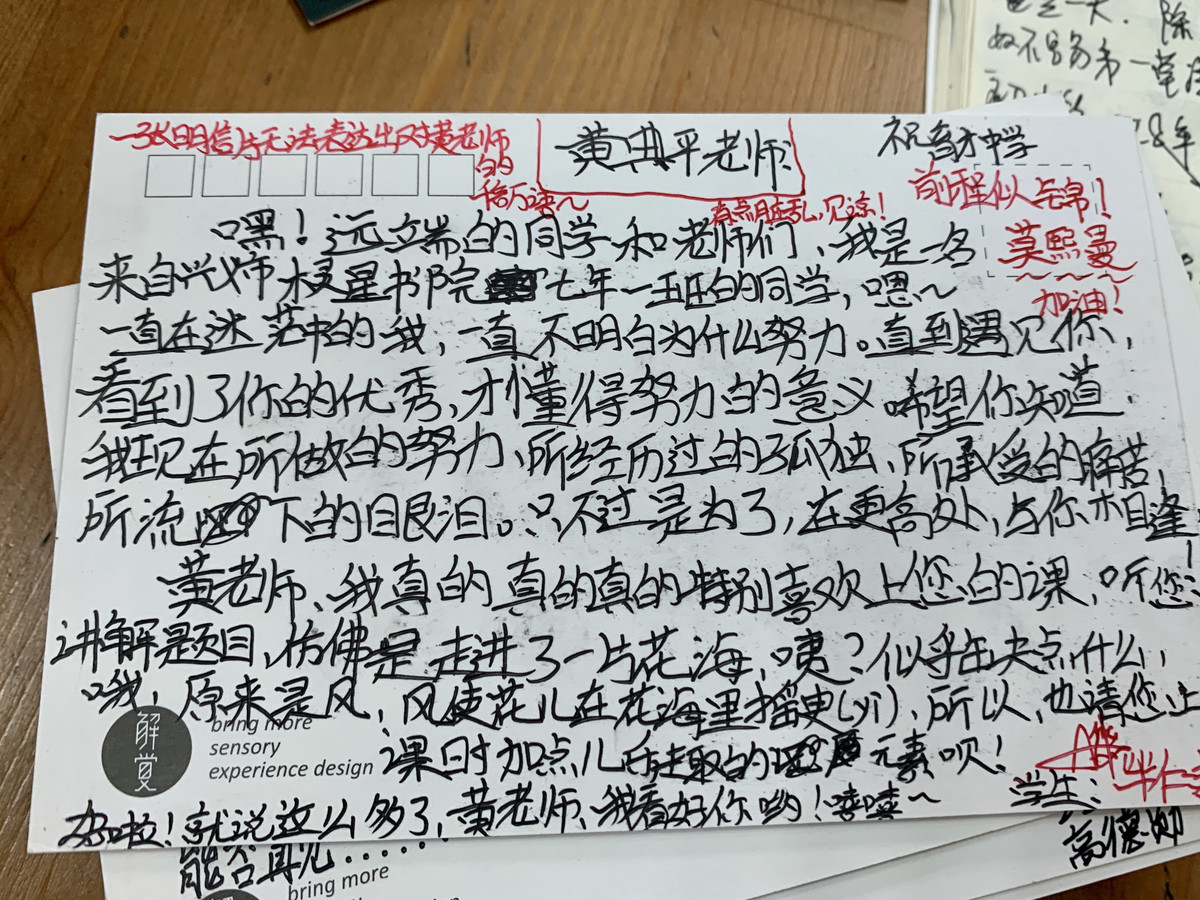 一张明信片无法表达出对黄老师
的
千言万语~
黄洪平老师:
祝育才中学
前程似锦!
有点脏乱,见谅!
莫熙曼
加油!
嘿!远端的同学和老师们,我是一名
来自兴师 星书院 七年一班的同学,嗯~
一直在迷茫中的我,一直不明白为什么努力。直到遇见你,
看到了你的优秀,才懂得努力的意义 希望你知道,
我现在所做的努力、所经历过的孤独、所承受的痛苦,
所流 下的眼泪。只不过是为了,在更高处,与你相逢!
黄老师、我真的真的真的特别喜欢上您的课,听您
讲解题目,仿佛是走进了一片花海,咦?似乎缺点什么,
哦,原来是风,风使花儿在花海里摇曳(yì),所以,也请您上
课时加点儿有趣的 元素呗!
好啦!就说这么多了,黄老师、我看好你哟!嘻嘻~
学生:
高德帅
解
觉
bring more
sensory
experience design
能否再见......
bring more